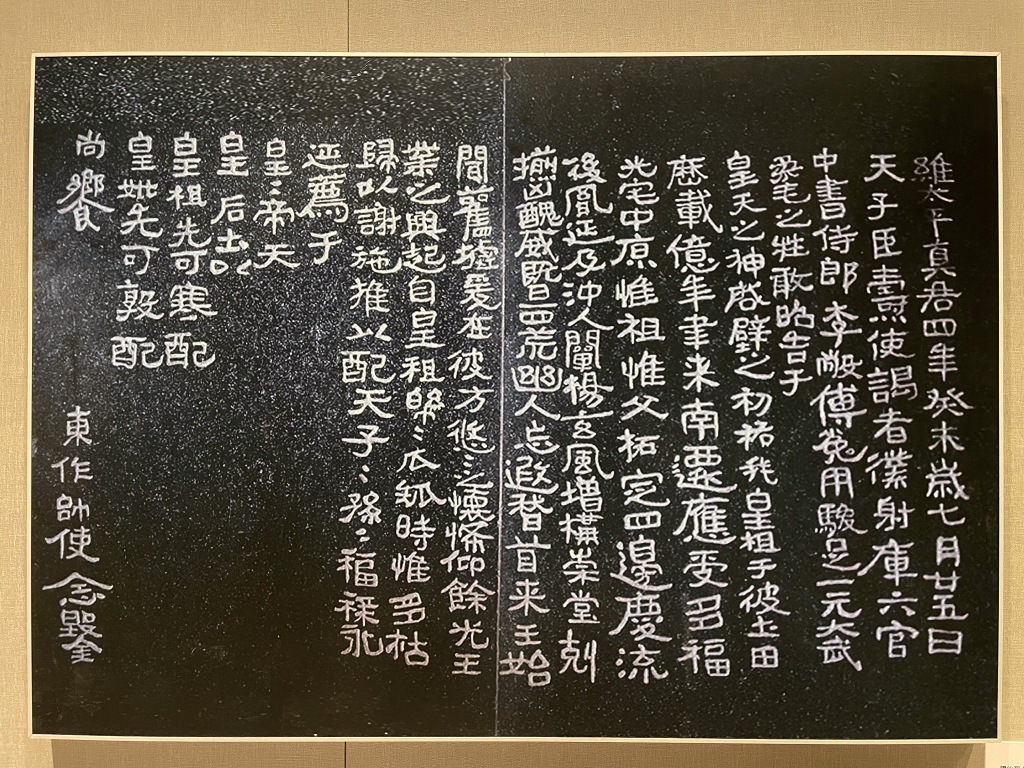 維太平真君四年癸未歲七月廿五日
天子臣燾使謁者僕射庫六官
中書侍郎李敞傅㝹用駿足一元大武
柔毛之牲敢昭告于
皇天之神啟辟之初祐我皇祖于彼土田
歷載億年聿来南遷應受多福
光宅中原惟祖惟父拓定四邊慶流
後胤延及沖人闡楊玄風增構崇堂剋
揃凶醜威暨四荒幽人忘遐稽首来王始
聞舊墟爰在彼方悠〻之懷希仰餘光王
業之興起自皇祖綿〻瓜瓞時惟多祜
歸以謝施推以配天子〻孫〻福祿永
延薦于
皇〻帝天
皇后土
皇祖先可寒配
皇妣先可敦配
尚饗
東作帥使念鑿